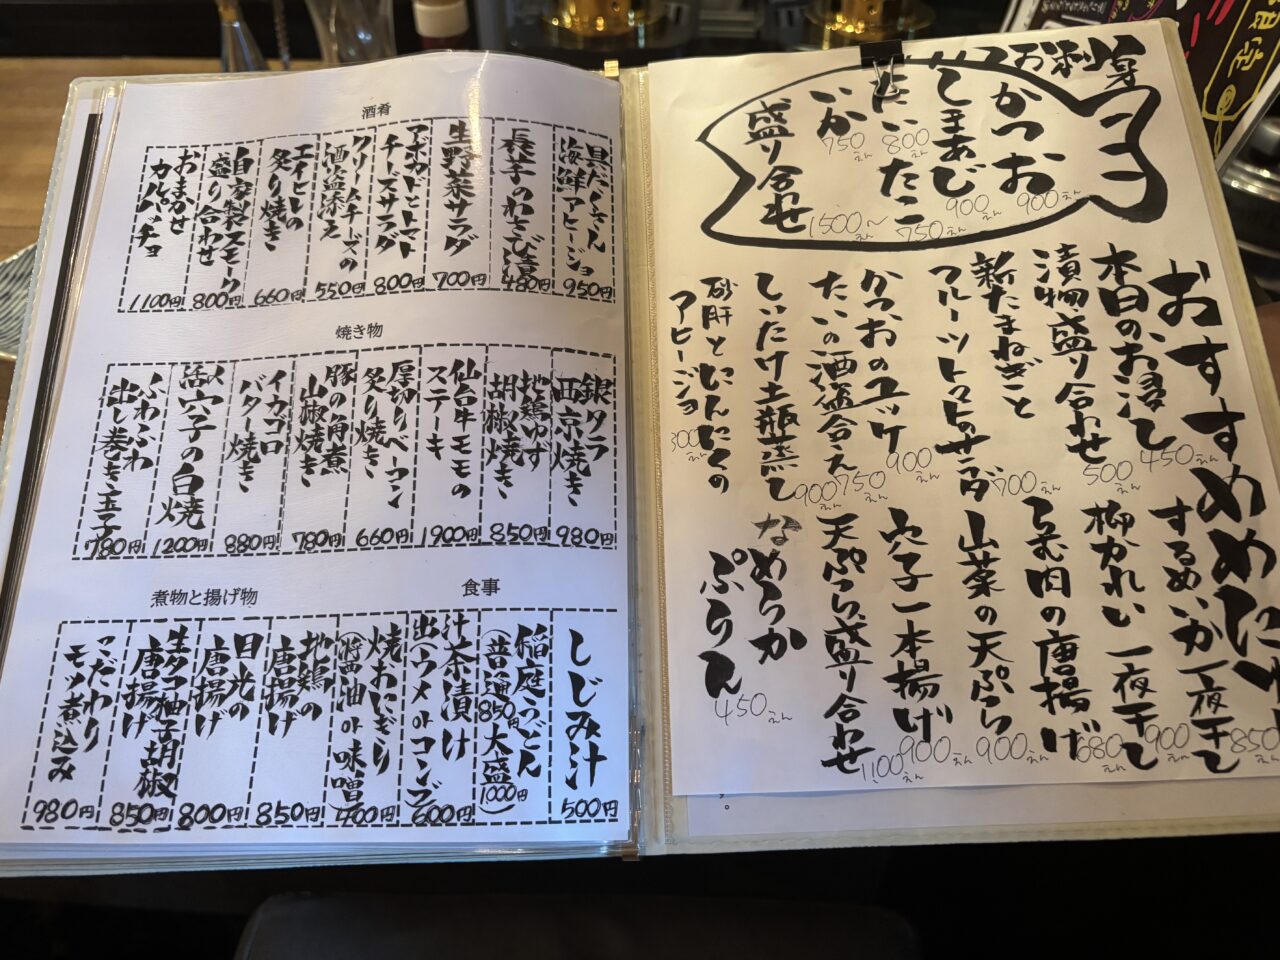 酒肴
具だくさん
海鮮アヒージョ
950円
長芋のわさび漬
480円
生野菜サラダ
700円
アボカドとトマト
チーズサラダ
800円
クリームチーズの
酒盗添え
550円
エイヒレの
炙り焼き
660円
自家製スモーク
盛り合わせ
800円
おまかせ
カルパッチョ
1100円
焼き物
銀ダラ
西京焼き
980円
地鶏ゆず
胡椒焼き
850円
仙台牛モモの
ステーキ
1900円
厚切りベーコン
炙り焼き
660円
豚の角煮
山椒焼き
780円
イカゴロ
バター焼き
880円
活〆穴子の白焼
1200円
ふわふわ
出し巻き玉子
780円
食事
しじみ汁
500円
稲庭うどん
(普通850円大盛1000円)
出汁茶漬け
ウメorコンブ
600円
焼おにぎり
(醤油or味噌)
400円
煮物と揚げ物
地鶏の
唐揚げ
850円
目光の
唐揚げ
800円
生タコ柚子胡椒
唐揚げ
850円
こだわり
モツ煮込み
980円
お刺身
かつお
900えん
しまあじ
900えん
たい
800えん
たこ
750えん
いか
750えん
盛り合わせ
1500〜えん
おすすめめにゅ
本日のお浸し
450えん
漬物盛り合わせ
500えん
新たまねぎと
フルーツトマトのサラダ
700えん
かつおのユッケ
900えん
たいの酒盗合え
750えん
しいたけ土瓶蒸し
900えん
砂肝とにんにくの
アヒージョ
するめいか一夜干し
850
柳かれい一夜干し
900えん
もも肉の唐揚げ
680えん
山菜の天ぷら
900えん
穴子一本揚げ
900えん
天ぷら盛り合わせ
1100えん
なめらか
ぷりん
450えん